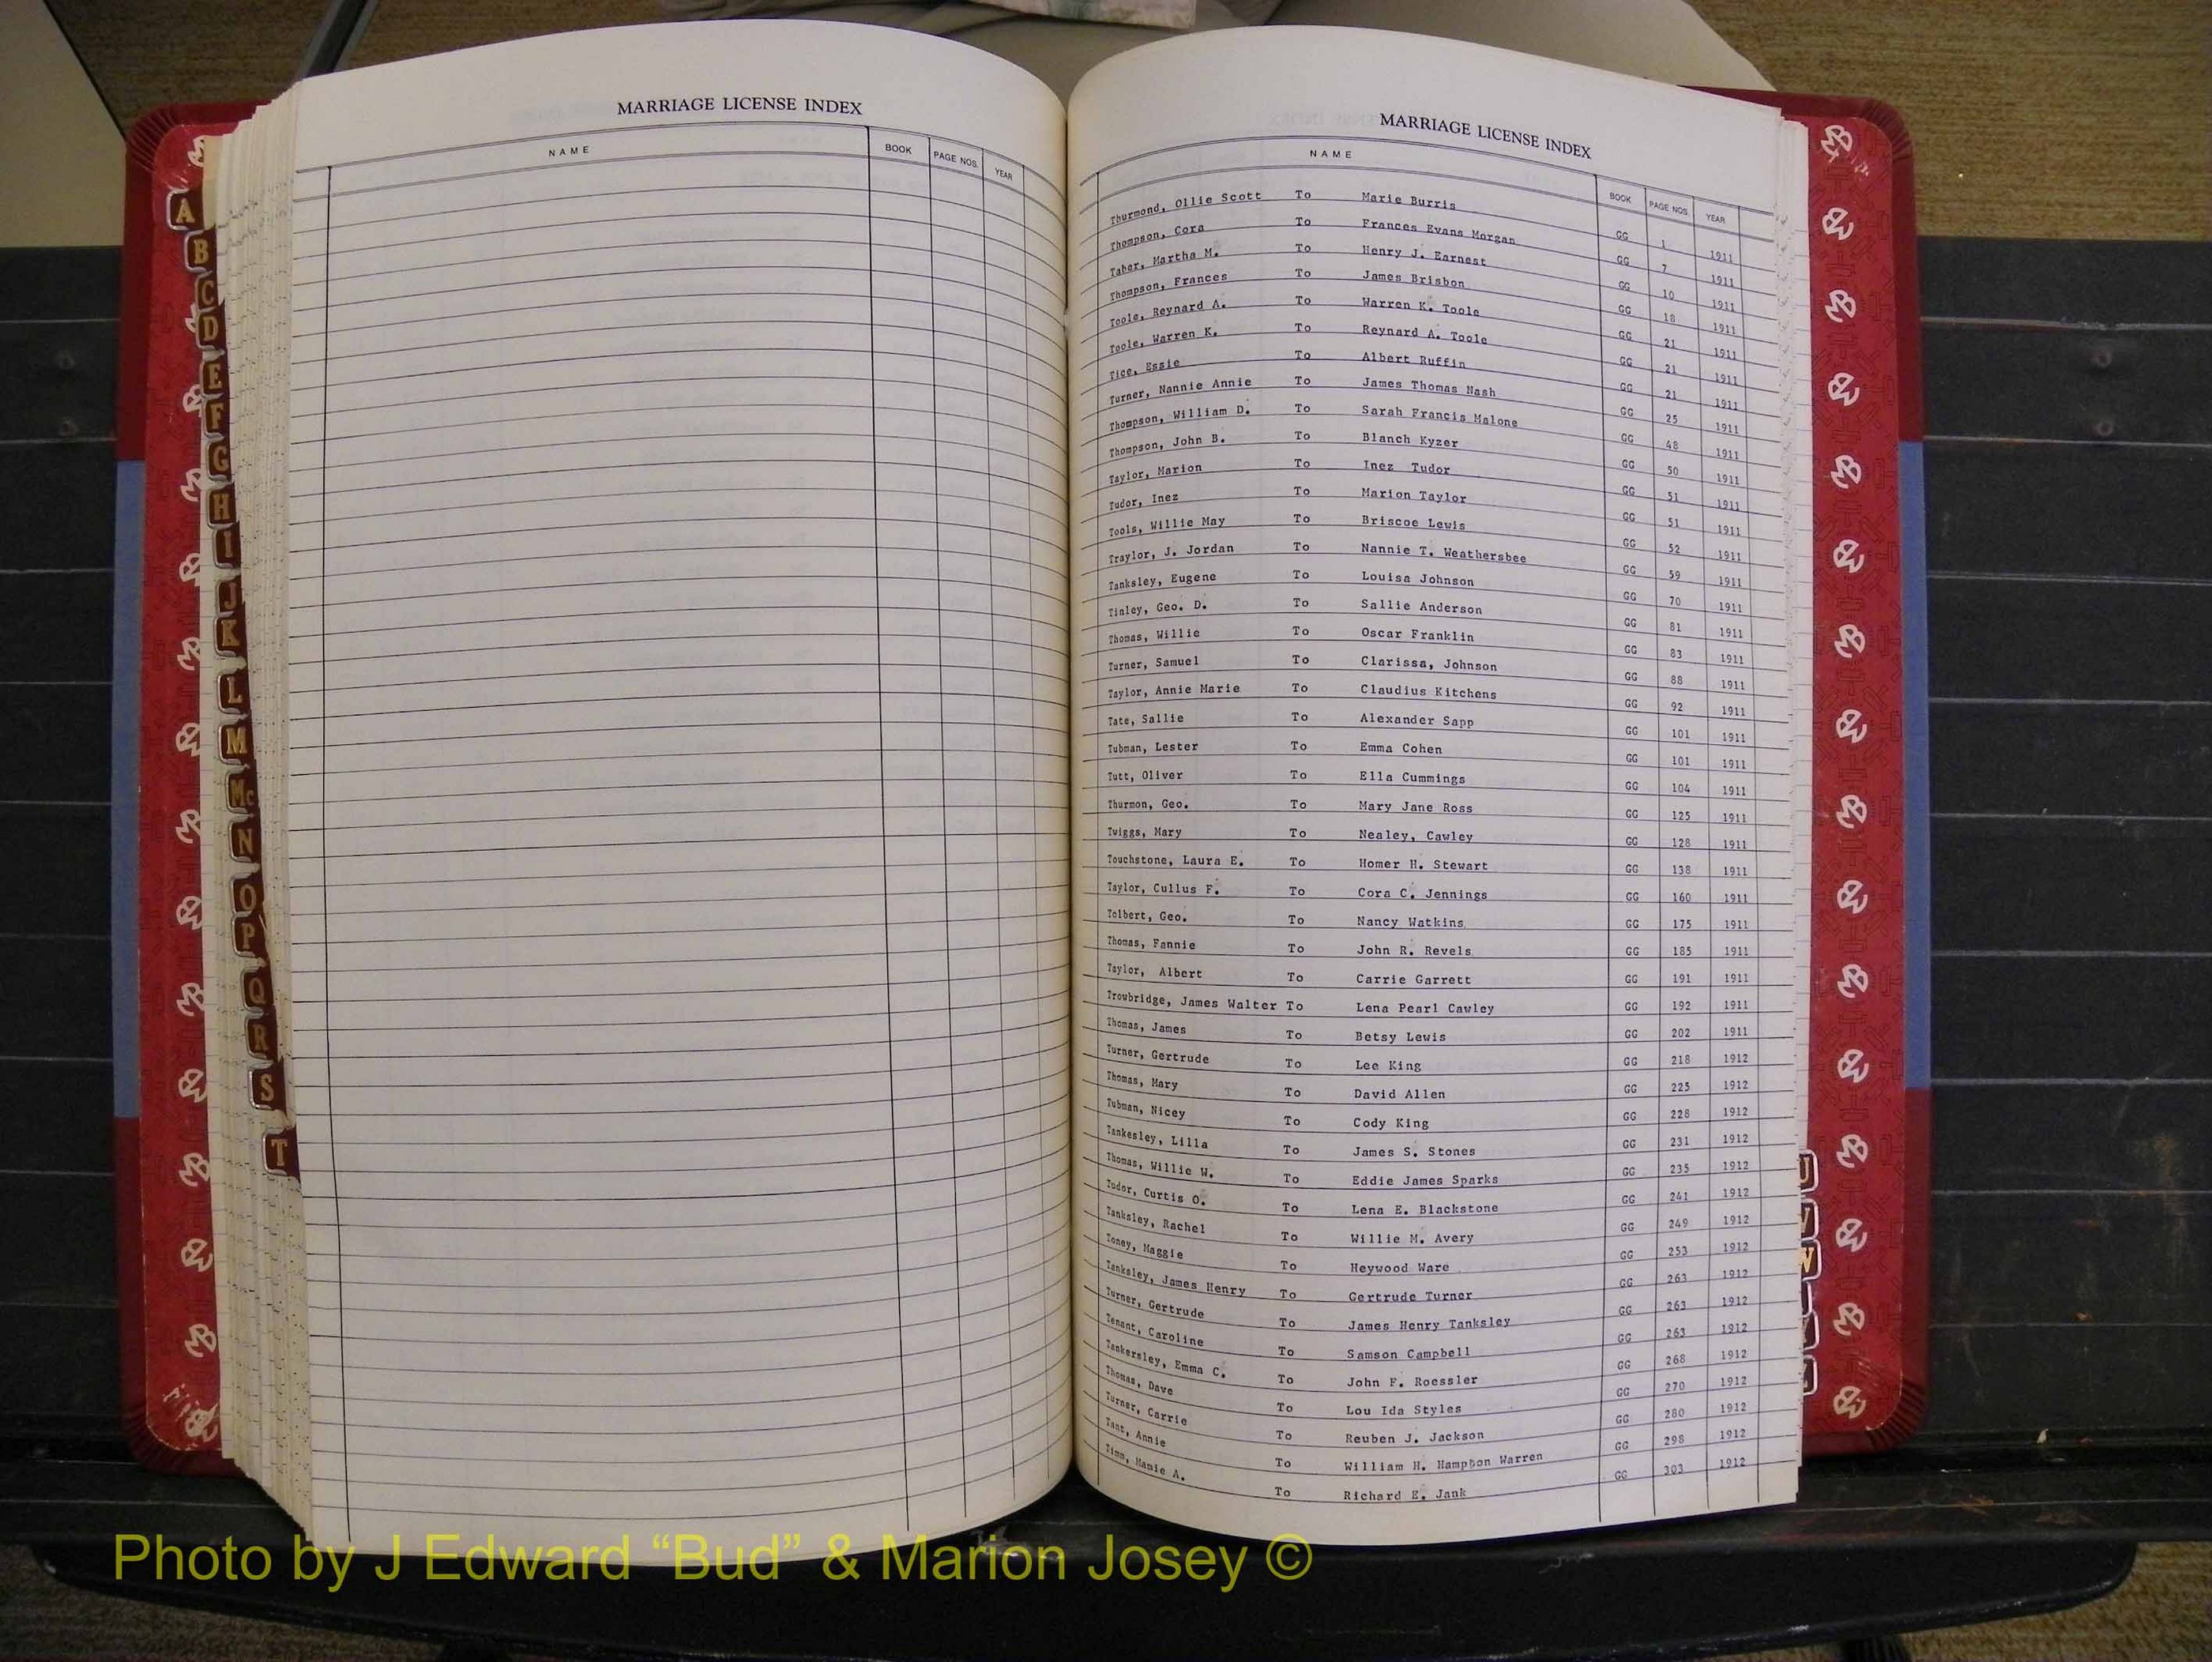 MARRIAGE LICENSE INDEX
NAME BOOK PAGE NOS. YEAR
MARRIAGE LICENSE INDEX
NAME BOOK PAGE NOS. YEAR
Thurmond, Ollie Scott To Marie Burris GG 1 1911
Thompson, Cora To Frances Evans Morgan GG 7 1911
Taber, Martha M. To Henry J. Earnest GG 10 1911
Thompson, Frances To James Brisbon GG 18 1911
Toole, Reynard A. To Warren K. Toole GG 21 1911
Toole, Warren K. To Reynard A. Toole GG 21 1911
Tice, Essie To Albert Ruffin GG 21 1911
Turner, Nannie Annie To James Thomas Nash GG 25 1911
Thompson, William D. To Sarah Francis Malone GG 48 1911
Thompson, John B. To Blanch Kyzer GG 50 1911
Taylor, Marion To Inez Tudor GG 51 1911
Tudor, Inez To Marion Taylor GG 51 1911
Tools, Willie May To Briscoe Lewis GG 52 1911
Traylor, J. Jordan To Nannie T. Weathersbee GG 59 1911
Tanksley, Eugene To Louisa Johnson GG 70 1911
Tinley, Geo. D. To Sallie Anderson GG 81 1911
Thomas, Willie To Oscar Franklin GG 83 1911
Turner, Samuel To Clarissa, Johnson GG 88 1911
Taylor, Annie Marie To Claudius Kitchens GG 92 1911
Tate, Sallie To Alexander Sapp GG 101 1911
Tubman, Lester To Emma Cohen GG 101 1911
Tutt, Oliver To Ella Cummings GG 104 1911
Thurmon, Geo. To Mary Jane Ross GG 125 1911
Twiggs, Mary To Nealey, Cawley GG 128 1911
Touchstone, Laura E. To Homer H. Stewart GG 138 1911
Taylor, Cullus F. To Cora C. Jennings GG 160 1911
Tolbert, Geo. To Nancy Watkins GG 175 1911
Thomas, Fannie To John R. Revels GG 185 1911
Taylor, Albert To Carrie Garrett GG 191 1911
Trowbridge, James Walter To Lena Pearl Cawley GG 192 1911
Thomas, James To Betsy Lewis GG 202 1911
Turner, Gertrude To Lee King GG 218 1912
Thomas, Mary To David Allen GG 225 1912
Tubman, Nicey To Cody King GG 228 1912
Tankesley, Lilla To James S. Stones GG 231 1912
Thomas, Willie W. To Eddie James Sparks GG 235 1912
Tudor, Curtis O. To Lena E. Blackstone GG 241 1912
Tanksley, Rachel To Willie M. Avery GG 249 1912
Toney, Maggie To Heywood Ware GG 253 1912
Tanksley, James Henry To Gertrude Turner GG 263 1912
Turner, Gertrude To James Henry Tanksley GG 263 1912
Tenant, Caroline To Samson Campbell GG 263 1912
Tankersley, Emma C. To John F. Roessler GG 268 1912
Thomas, Dave To Lou Ida Styles GG 270 1912
Turner, Carrie To Reuben J. Jackson GG 280 1912
Tant, Annie To William H. Hampton Warren GG 298 1912
Timm, Mamie A. To Richard E. Jank GG 303 1912
A
B
C
D
E
F
G
H
I
J
K
L
M
Mc
N
O
P
Q
R
S
T
U
V
W
Photo by J Edward “Bud” & Marion Josey ©